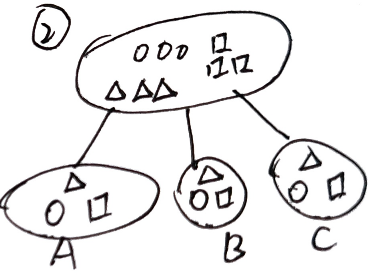 ②
A
B
C